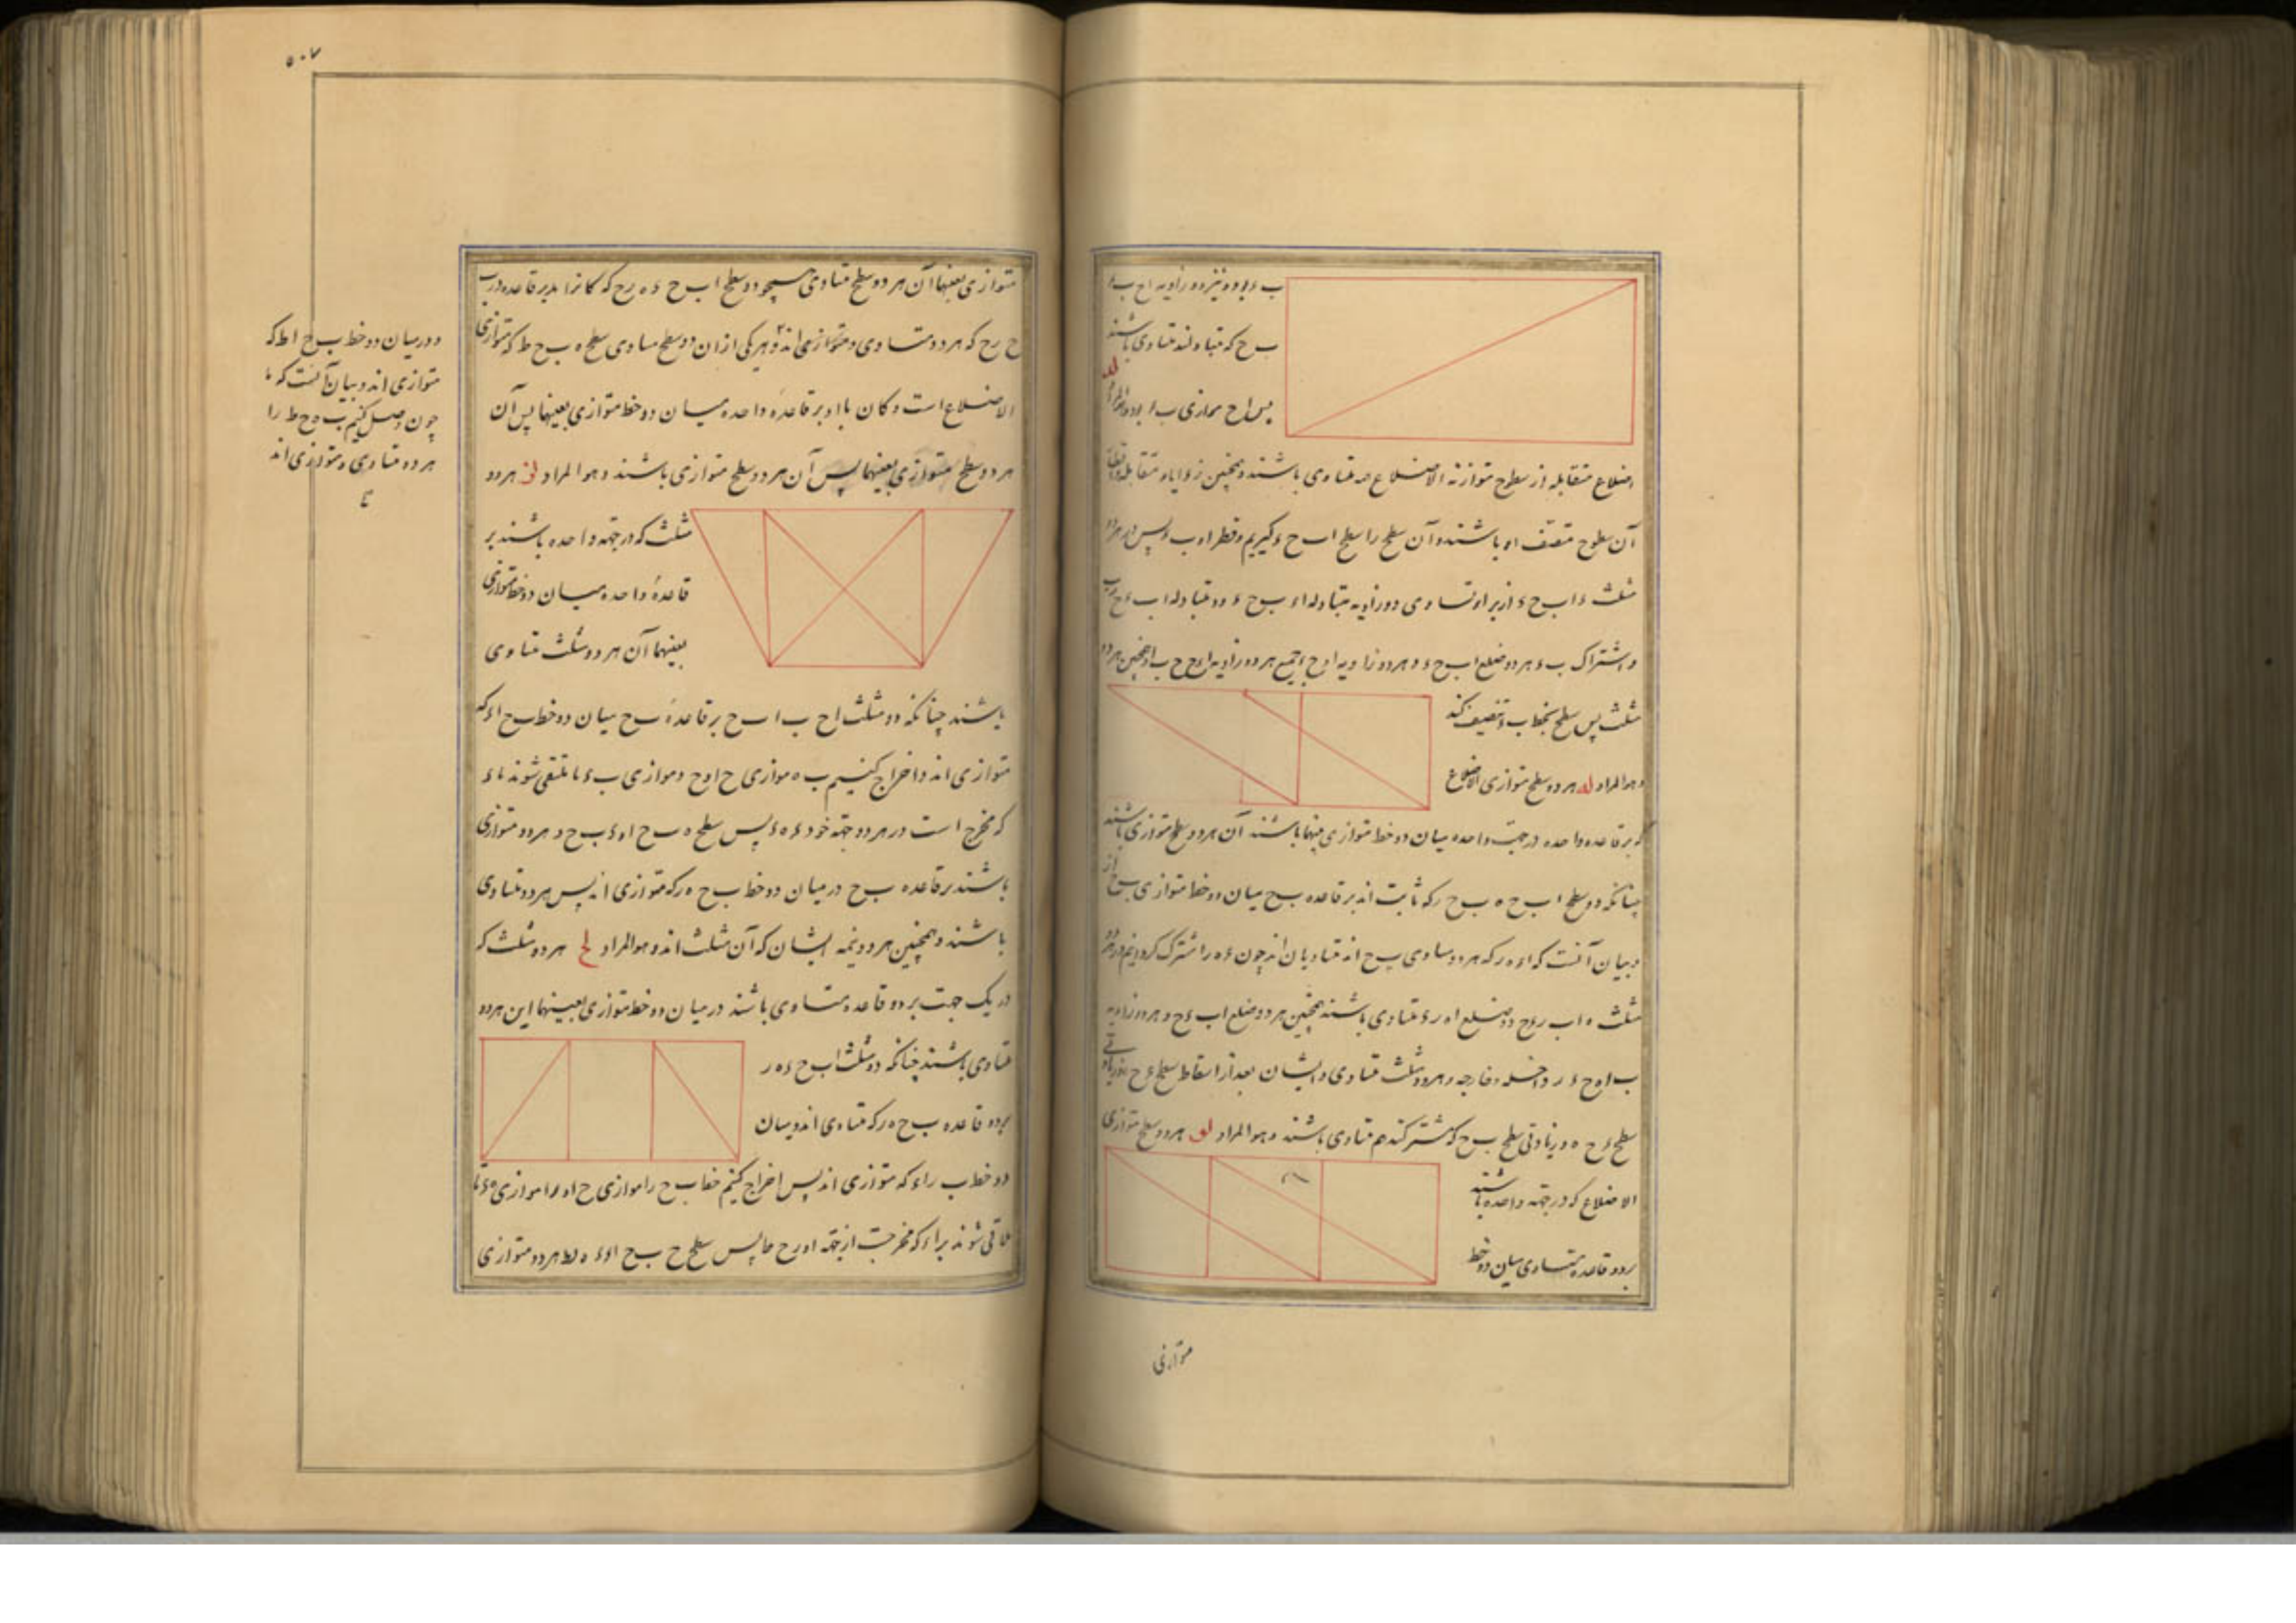 ب ء بوده نیز دو زاویه ا ح ب ء
ب ح که متبادلند متساوی باشند
پس ا ح موازی ب ء بود و هو المراد لد
اضلاع متقابله از سطوح متوازیة الاضلاع متساوی باشند و همچنین زوایاء متقابله و اقطار
آن سطوح منصف او باشند و آن سطح را سطح ا ب ح ء گیریم و قطر او ب ء پس در هر دو
مثلث ء ا ب ح ء از برای تساوی دو زاویه متبادله ا ء ب ح ء و دو متبادله ا ب ء ح ء ب
و اشتراک ب ء هر دو ضلع ا ب ح ء و هر دو زاویه ا و ح و جمیع هر دو زاویه ا ء ح ح ب ا و همچنین هر دو
مثلث پس سطح بخط ب ء تنصیف کند
و هو المراد له هر دو سطح متوازی الاضلاع
که بر قاعده واحده در جهت واحده میان دو خط متوازی بعینهما باشند آن هر دو سطح متوازی باشند
چنانکه دو سطح ا ب ح ء ه ب ح ر که ثابت اند بر قاعده ب ح میان دو خط متوازی ب ح ا ر
و بیان آنست که ا ء ه ر که هر دو مساوی ب ح اند متساویان اند چون ء ه را مشترک گردانیم در هر دو
مثلث ه ا ب ر ء ح دو ضلع ا ه ر ء متساوی باشند همچنین هر دو ضلع ا ب ء ح و هر دو زاویه
ب ا ه ح ء ر داخله و خارجه و هر دو مثلث متساوی و ایشان بعد از اسقاط سطح ء ح ه و زیادتی
سطح ء ح ه و زیادتی سطح ب ح که مشترکند هم متساوی باشند و هو المراد لو هر دو سطح متوازی
الاضلاع که در جهة واحده باشند
بر دو قاعده متساوی میان دو خط
متوازی
۵۰۷
متوازی بعینهما آن هر دو سطح متساوی همچو دو سطح ا ب ح ء ه ر ح که کائن اند بر قاعده ب
ح ر ح که هر دو متساوی و متوازی اند و هر یکی از آن دو سطح مساوی سطح ه ب ح ط که متوازی
الاضلاع است و کائن با او بر قاعده واحده میان دو خط متوازی بعینهما پس آن
هر دو سطح متوازی بعینهما پس آن هر دو سطح متوازی باشند و هو المراد لز هر دو
مثلث که در جهة واحده باشند بر
قاعده واحده میان دو خط متوازی
بعینهما آن هر دو مثلث متساوی
باشند چنانکه دو مثلث ا ح ب ا ب ح بر قاعده ب ح میان دو خط ب ح ا ء که
متوازی اند و اخراج کنیم ب ه موازی ح ا و ح و موازی ب ء تا ملتقی شوند با ء
که مخرج است در هر دو جهة خود ء ه ء پس سطح ه ب ح ا ء ب ح و هر دو متوازی
باشند بر قاعده ب ح در میان دو خط ب ح ه ر که متوازی اند پس هر دو متساوی
باشند و همچنین هر دو نیمه ایشان که آن مثلث اند و هو المراد لح هر دو مثلث که
در یک جهت بر دو قاعده متساوی باشند در میان دو خط متوازی بعینهما این هر دو
متساوی باشند چنانکه دو مثلث ا ب ح ء ه ر
بر دو قاعده ب ح ه ر که متساوی اند و میان
دو خط ب ر ا ء که متوازی اند پس اخراج کنیم خط ب ح را موازی ح ا و ر ا موازی ه ء تا
ملاقی شوند بر ا ء که مخرجست از جهة ا و ر ح ط پس سطح ح ب ح ا ء ه ر ط هر دو متوازی
و در میان دو خط ب ح ا ط که
متوازی اند و بیان آنست که
چون وصل کنیم ب ه ح ط را
هر دو متساوی و متوازی اند